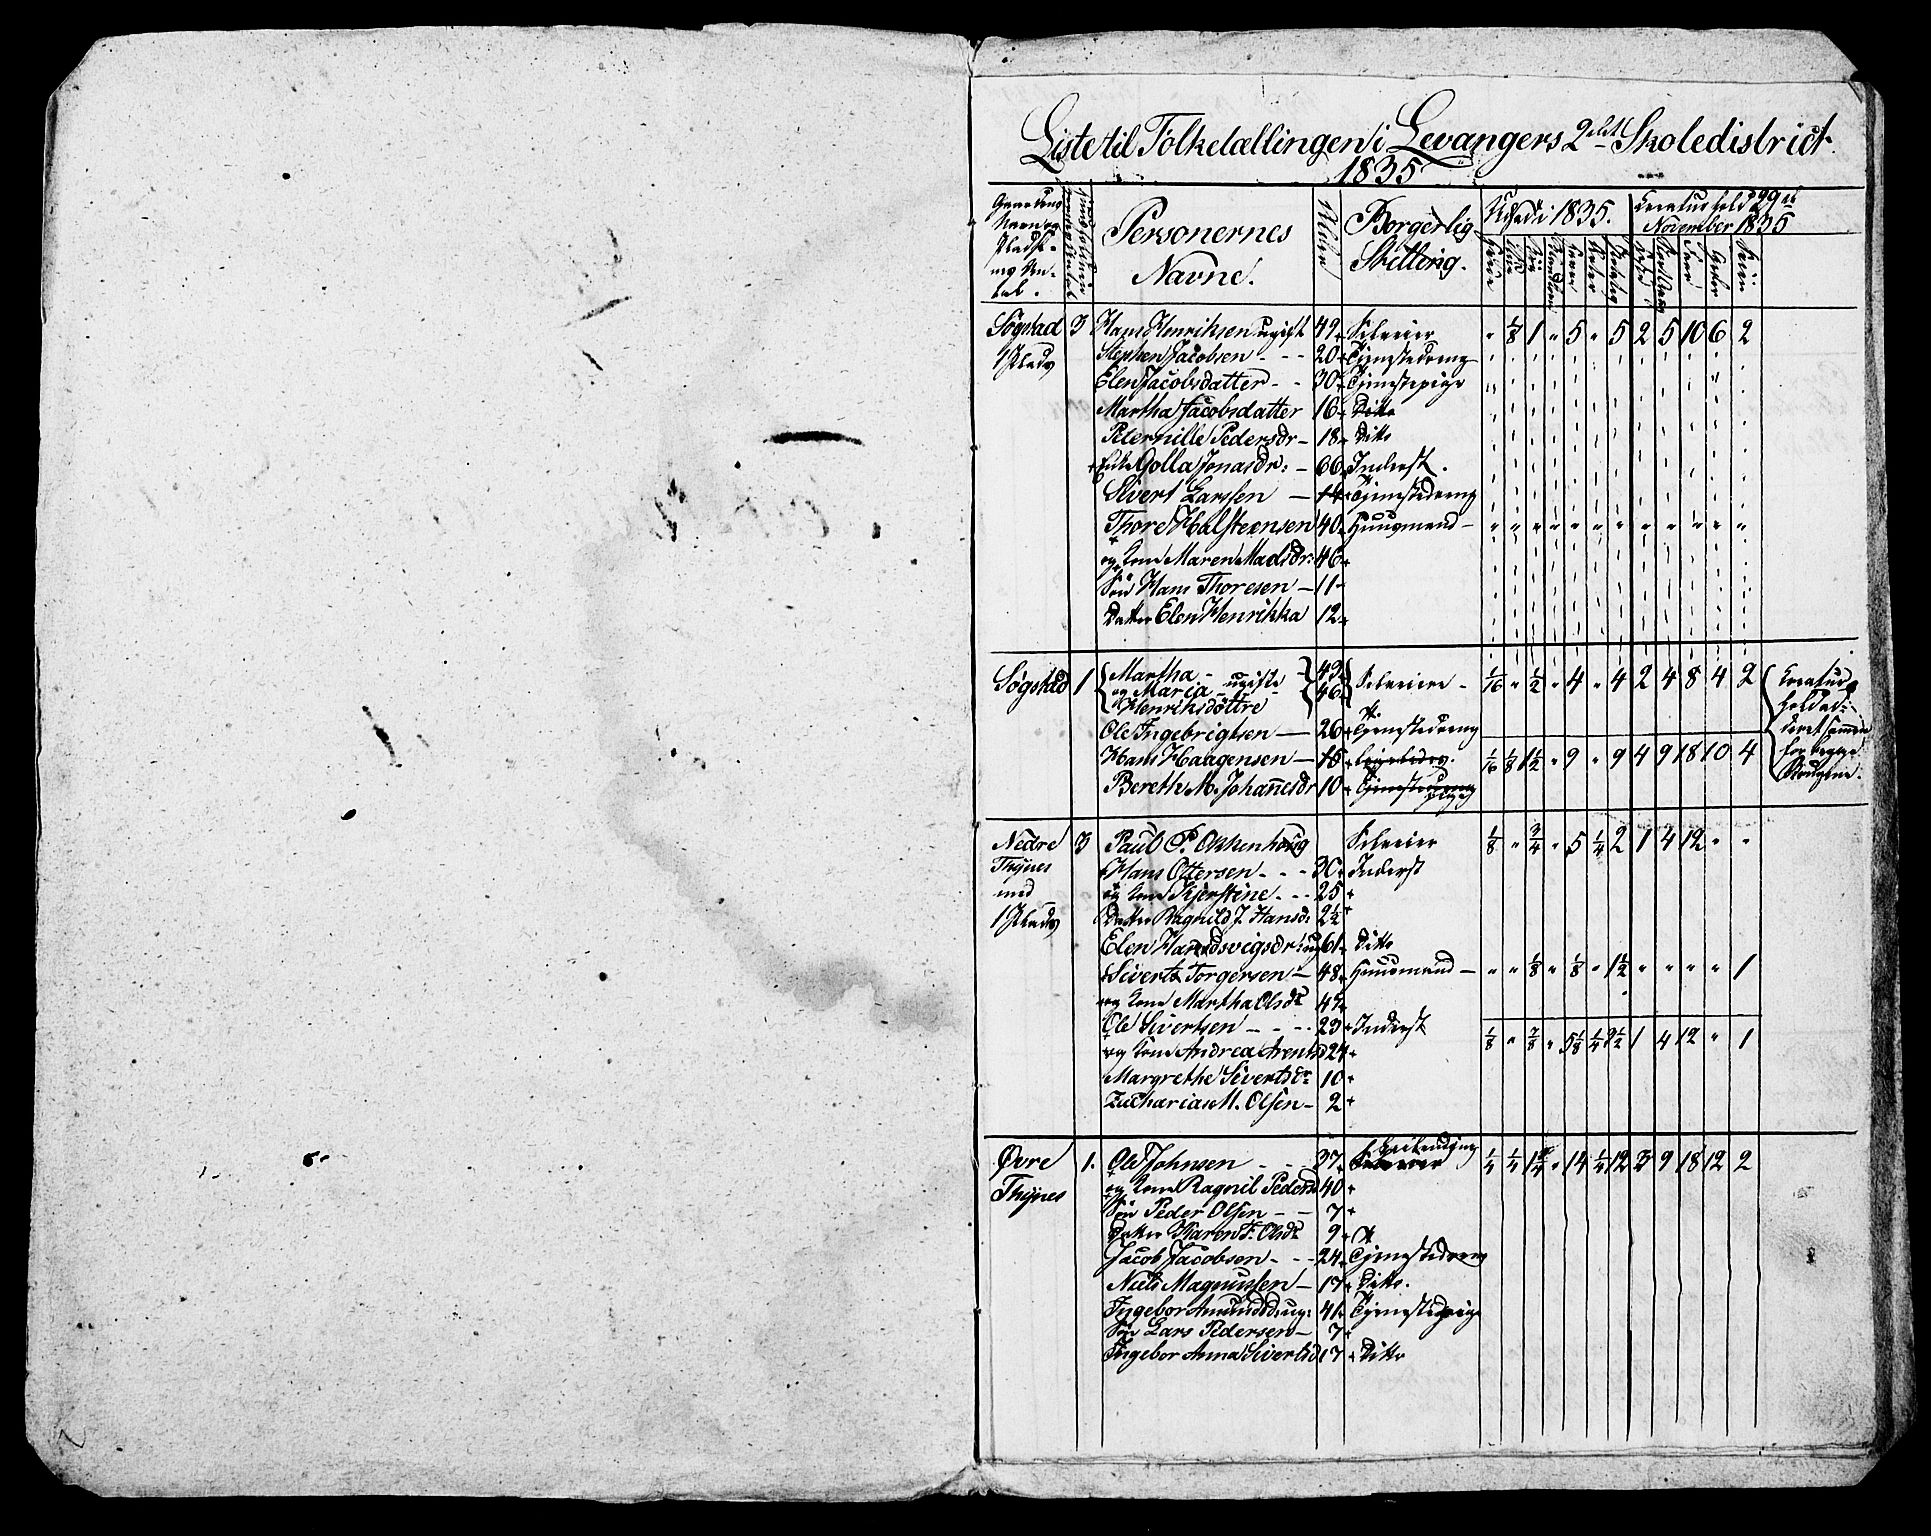 Liste til Folketællingen i Levangers 2det Skoledistrict
1835
Gaardens Navn og Pladsernes Antal.
Personernes Navne.
Alder
Borgerlig Stilling.
Udsæd i 1835.
Kreaturhold 29de November 1835
Søgstad 3 Hans Henriksen ugift 49 Selveier " 1/8 1 " 5 " 5 2 5 10 6 2
1 Plads Stephen Jacobsen - - - 20 Tjenestedreng
Elen Jacobsdatter - - 30 Tjenestepige
Martha Jacobsdatter 16 Ditto
Peternille Pedersdr - 18 Ditto
Enke Golla Jonasdr: - 66 Inderst.
Sivert Larssen - 14 Tjenestedreng
Thore Halsteensen 40 Huusmand - " " " " " " " " " " " "
og Kone Maren Madsdr: 46
Søn Hans Thoresen - 11
Datter Elen Henrikka 12
Søgstad 1 Martha - - 49
og Maria - ugifte - 46 Selveiere - 1/16 " 1/2 " 4 " 4 2 4 8 4 2
Henriksdøttre
Ole Ingebrigtsen - 26 Tjenestedreng
Hans Haagensen - 15 1/16 1/8 1 1/2 " 9 " 9 4 9 18 10 4
Bereth M. Johannesdr 10 Tjenestepige
Kreaturholdet
sammen
for begge
Nedre 3 Paul P. Okkenhoug Selveier 1/8 " 3/4 " 5 1/4 2 1 4 12 " "
Thynes Hans Ottersen - - - 30 Inderst
med og Kone Kjerstine - - - 25
1 Plads Datter Ragnild J. Hansd: 2 1/2
Elen Hardsvigsdr: ug 61 Ditto
Sivert Torgersen - 48 Huusmand - " " 1/8 " 1/8 " 1 1/2 " " " " 1
og Kone Martha Olsdr 47
Ole Sivertsen - - - - 23 Inderst 1/8 " 7/8 " 5 1/8 1/4 3 1/2 1 4 12 " 1
og Kone Andrea Arentsd 24
Margrethe Sivertsdr 10
Zacharias M. Olsen - 2
Øvre 1. Ole Johnsen - - - 37 Leilending 1/4 1/4 1 3/4 " 14 1/4 12 3 9 18 12 2
Thynes og Kone Ragnil Pedersd 40
Søn Peder Olsen - - 7
Datter Karen F. Olsdr 9
Jacob Jacobsen - - - 24 Tjenestedreng
Niels Magnussen - 17 Ditto.
Ingebor Amundsd: ug: 41 Tjenestepige
Søn Lars Pedersen - 7
Ingebor Anna Sivertsd 17 Ditto